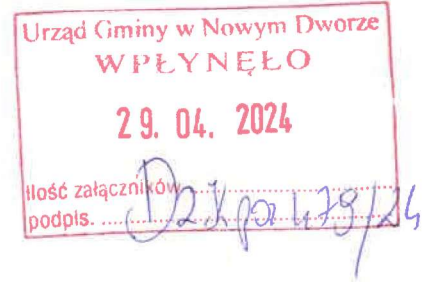 Urząd Gminy w Nowym Dworze
WPŁYNĘŁO
29. 04. 2024
Ilość załączników
podpis. DzKpoz 479/24